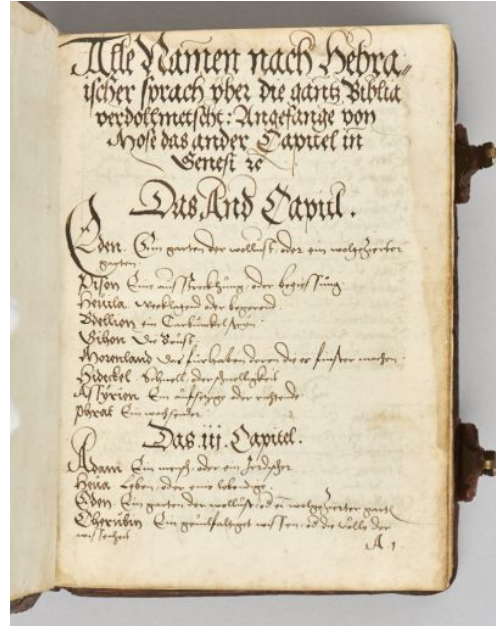 Alle Namen nach Hebra„
ischer sprach vber die gantz Biblia
verdollmetscht: Angefange von
Mose das ander Capitel in
Genesi ꝛc
Das And Capitl.
Eden. Ein garten der wollust, oder ein wolgezierter
garten.
Pison Eine außstreckhung, oder begiessung
Heuila. weeklagend oder
Bdellion ein Carbunckelstein
Gihon Die Brust.
Morenland Das fürhaben deren die es finster machen.
Hideckel Schnell, oder schnelligkeit
Assÿrien. Ein aufsetzige oder richtende
Phrat Ein wachsender
Das iij. Capitel.
Adam Ein mensch, oder ein Jrdischer
Heua Leben, oder eine lebendige.
Eden Ein garten der wollust, od ein wolgezierter gart
Cherubin Ein wissen, od die völle der
wissenheit
A. 1